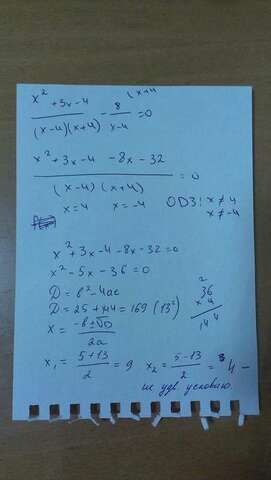 (x+4
x² +3x-4 / (x-4)(x+4) - 8 / x-4 =0
x² +3x-4 -8x-32 / (x-4) (x+4) = 0
x=4 x=-4 ОДЗ! x≠4
x≠-4
x²+3x-4-8x-32=0
x²-5x-36=0
D=b²-4ac
D=25+144=169 (13²)
x= -b±√D / 2a
2
36
x 4
144
x₁= 5+13 / 2 = 9 x₂= 5-13 / 2 = 4 -
не удв. условию